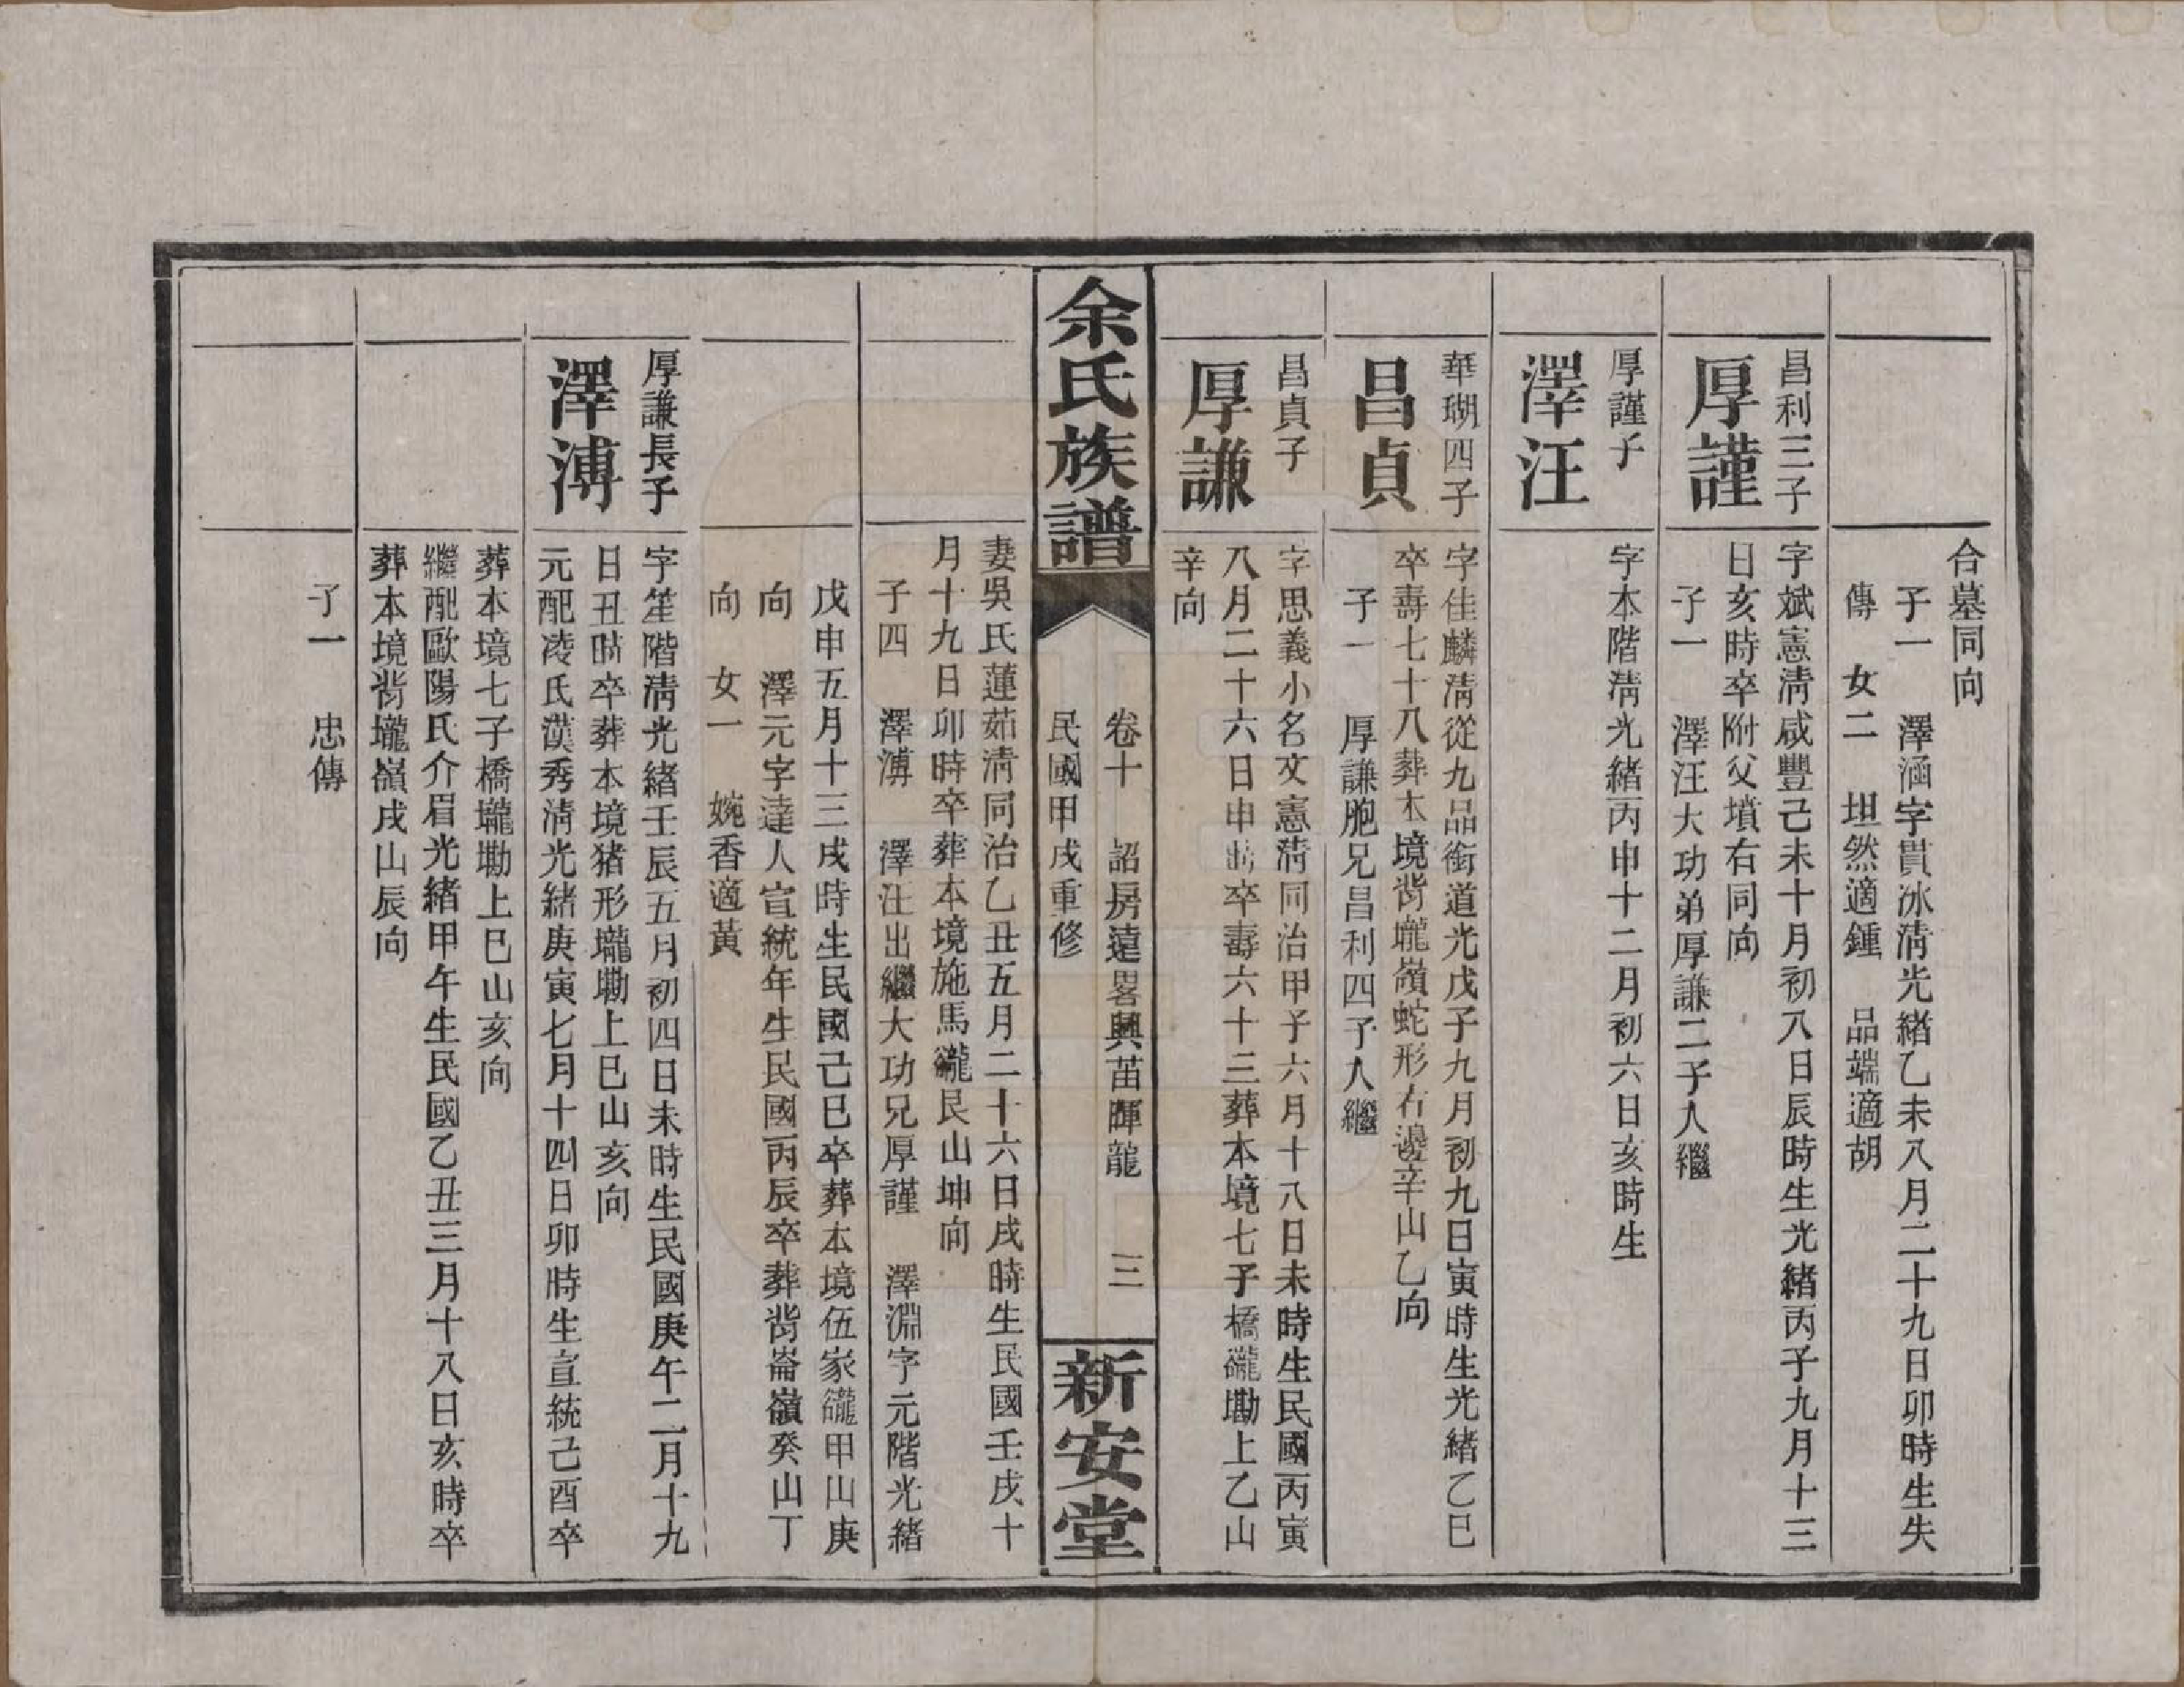 合墓同向
子一　澤涵字貫冰清光緒乙未八月二十九日卯時生失
傳　女二　坦然適鍾　品端適胡
昌利三子
厚謹
字斌憲清咸豐己未十月初八日辰時生光緒丙子九月十三
日亥時卒附父墳右同向
子一　澤汪大功弟厚謙二子入繼
厚謹子
澤汪
字本階清光緒丙申十二月初六日亥時生
華瑚四子
昌貞
字佳麟清從九品銜道光戊子九月初九日寅時生光緒乙巳
卒壽七十八葬本境背壠嶺蛇形右邊辛山乙向
子一　厚謙胞兄昌利四子入繼
昌貞子
厚謙
字思義小名文憲清同治甲子六月十八日未時生民國丙寅
八月二十六日申時卒壽六十三葬本境七子橋壠墈上乙山
辛向
余氏族譜
卷十　詔房遠畧興苗暉龍　三
民國甲戌重修
新安堂
妻吳氏蓮茹清同治乙丑五月二十六日戌時生民國壬戌十
月十九日卯時卒葬本境施馬壠艮山坤向
子四　澤溥　澤汪出繼大功兄厚謹　澤淵字元階光緒
戊申五月十三戌時生民國己巳卒葬本境伍家壠甲山庚
向　澤元字達人宣統年生民國丙辰卒葬背崙嶺癸山丁
向　女一　婉香適黃
厚謙長子
澤溥
字笙階清光緒壬辰五月初四日未時生民國庚午二月十九
日丑時卒葬本境猪形壠墈上巳山亥向
元配凌氏漢秀清光緒庚寅七月十四日卯時生宣統己酉卒
葬本境七子橋壠墈上巳山亥向
繼配歐陽氏介眉光緒甲午生民國乙丑三月十八日亥時卒
葬本境背壠嶺戌山辰向
子一　忠傳